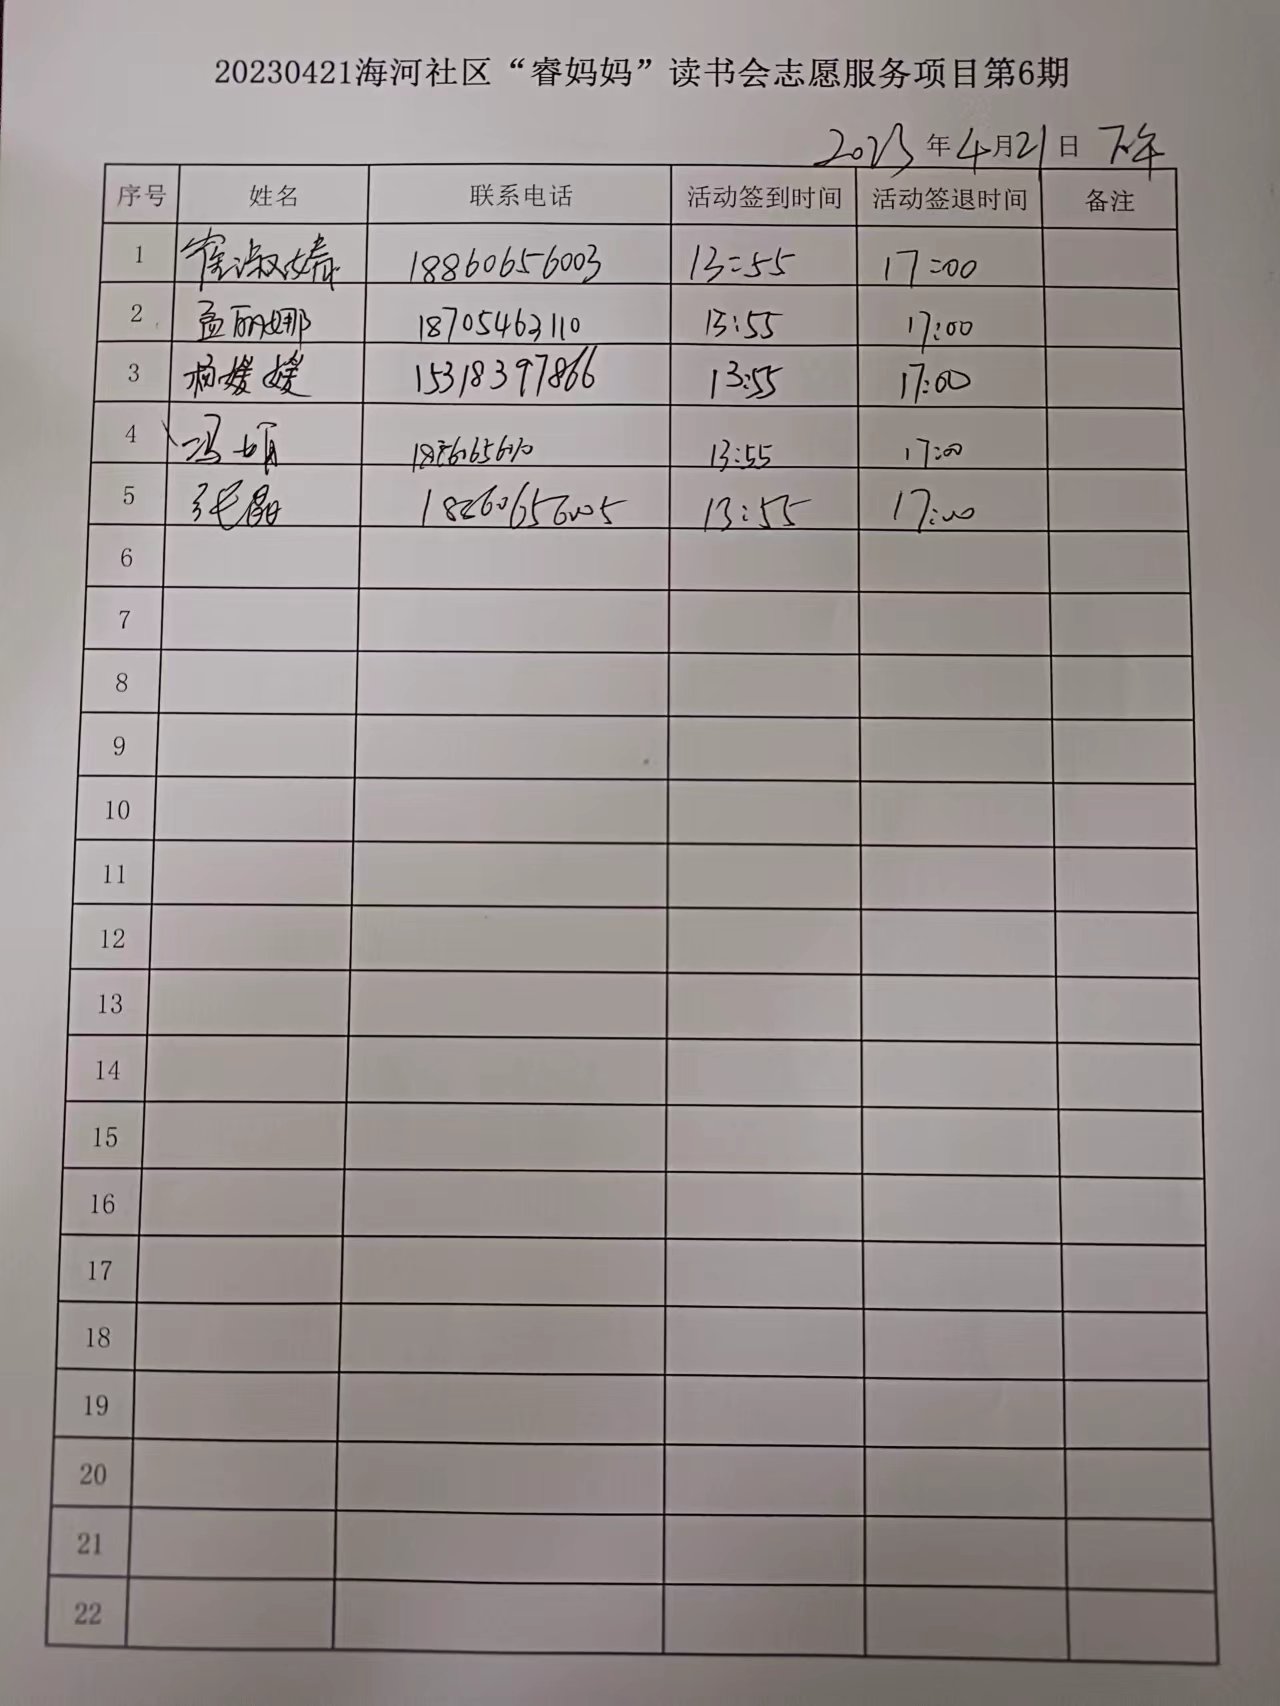 20230421海河社区“睿妈妈”读书会志愿服务项目第6期
2023年4月21日 下午
序号 姓名 联系电话 活动签到时间 活动签退时间 备注
1 崔淑娇 18860656003 13:55 17:00
2 孟丽娜 18705463110 13:55 17:00
3 杨媛媛 15318397866 13:55 17:00
4 冯娟 13:55 17:00
5 张晶 18260656005 13:55 17:00
6
7
8
9
10
11
12
13
14
15
16
17
18
19
20
21
22